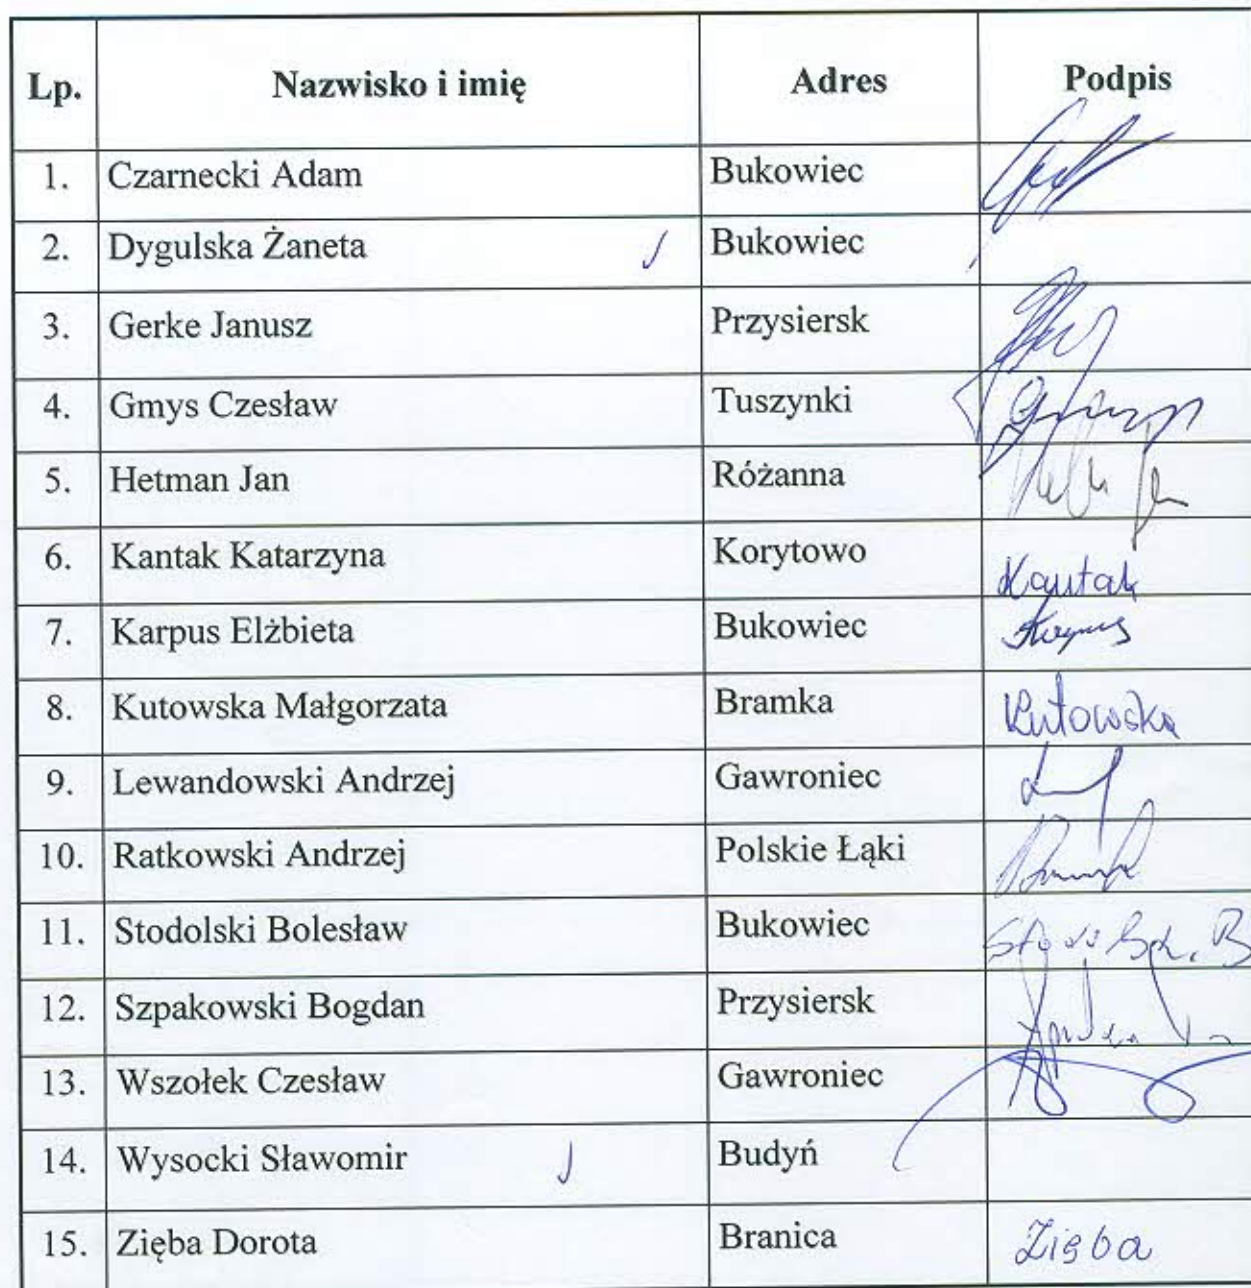 Lp. Nazwisko i imię Adres Podpis
1. Czarnecki Adam Bukowiec
2. Dygulska Żaneta Bukowiec
3. Gerke Janusz Przysiersk
4. Gmys Czesław Tuszynki
5. Hetman Jan Różanna
6. Kantak Katarzyna Korytowo Kantak
7. Karpus Elżbieta Bukowiec Karpus
8. Kutowska Małgorzata Bramka Kutowska
9. Lewandowski Andrzej Gawroniec
10. Ratkowski Andrzej Polskie Łąki
11. Stodolski Bolesław Bukowiec
12. Szpakowski Bogdan Przysiersk
13. Wszołek Czesław Gawroniec
14. Wysocki Sławomir Budyń
15. Zięba Dorota Branica Zięba